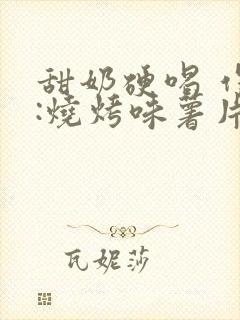 甜奶硬唱
:燒烤味薯片
瓦妮莎